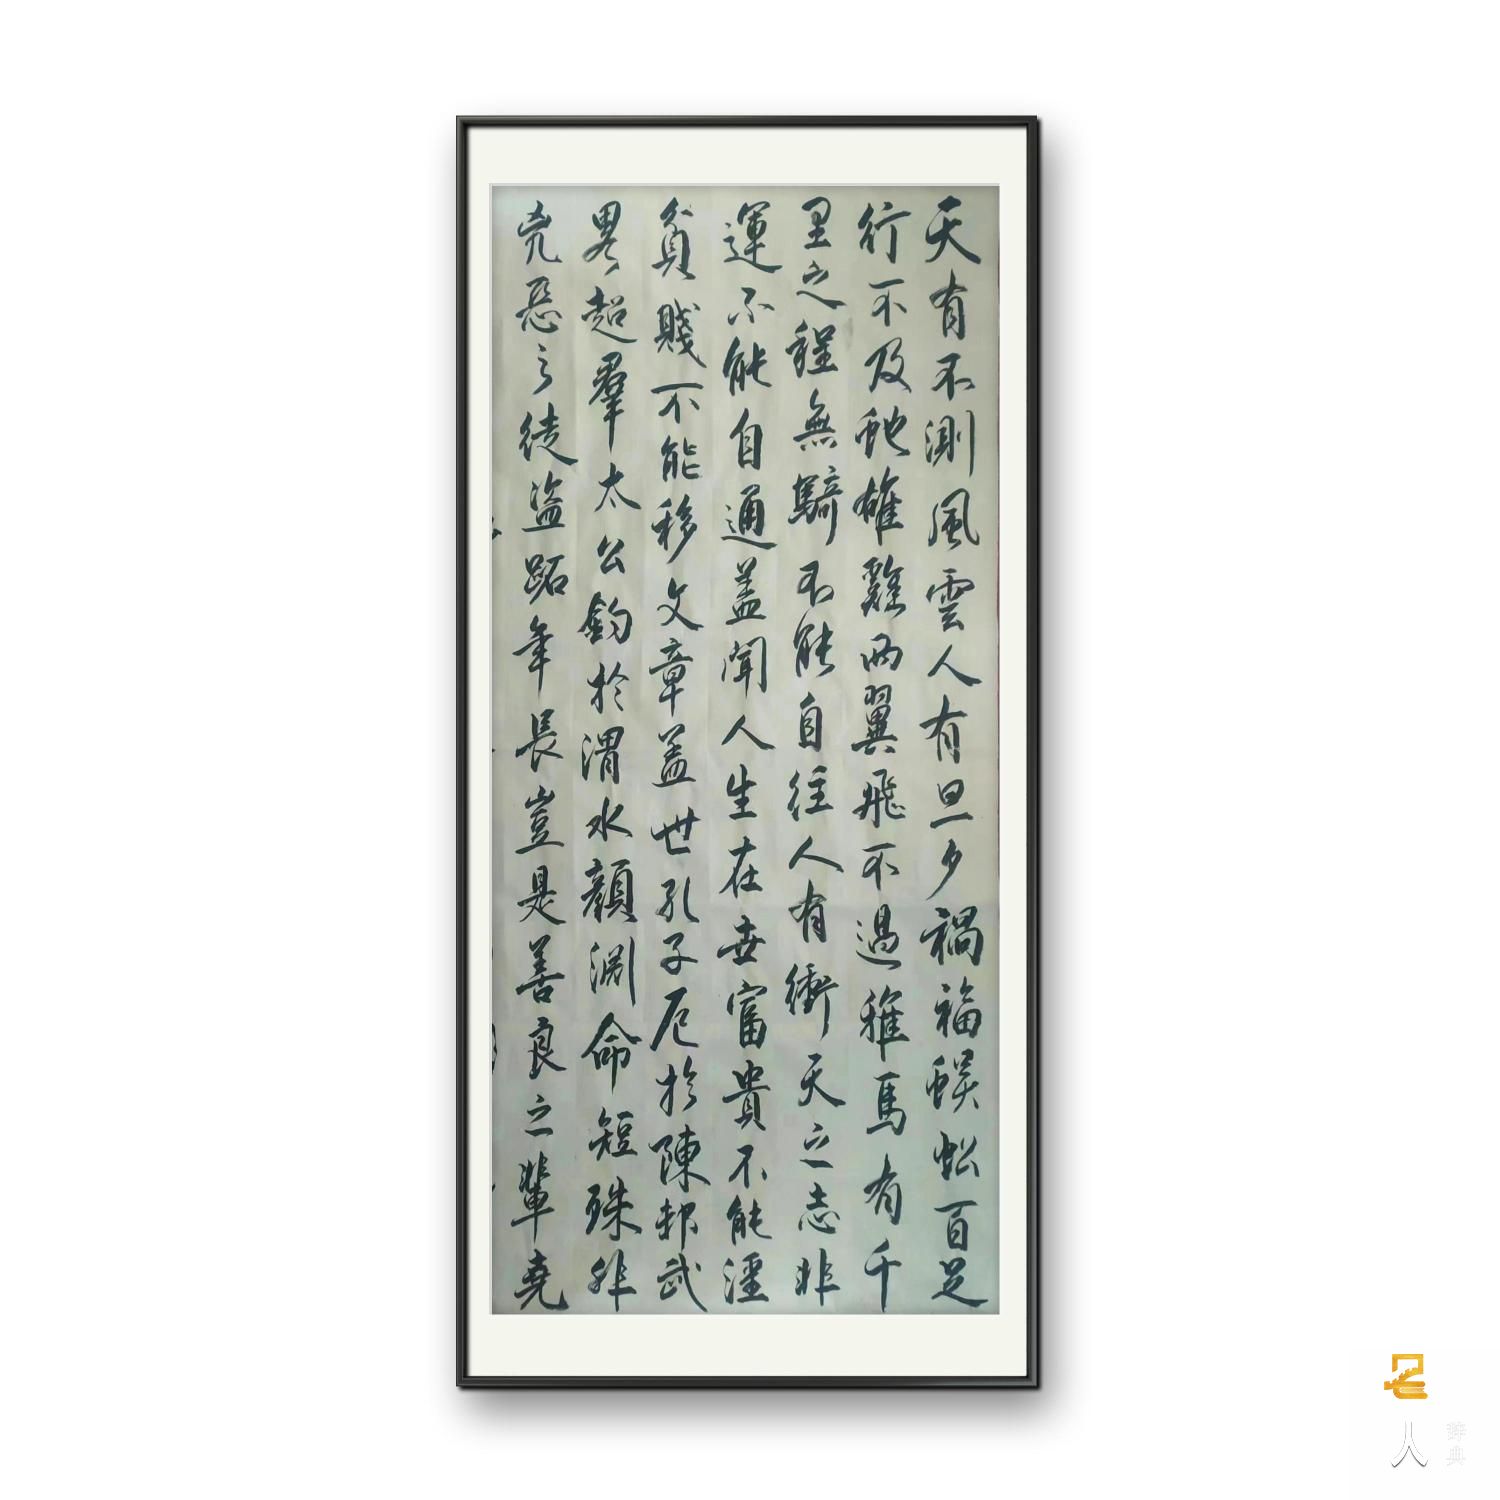 天有不測風雲人有旦夕禍福蜈蚣百足
行不及蛇雄雞兩翼飛不過雅馬有千
里之程無騎不能自往人有衝天之志非
運不能自通盖聞人生在世富貴不能淫
貧賤不能移文章盖世孔子厄於陳邦武
畧超羣太公釣於渭水顏淵命短殊非
兇惡之徒盜跖年長豈是善良之輩堯
名
人 辞典